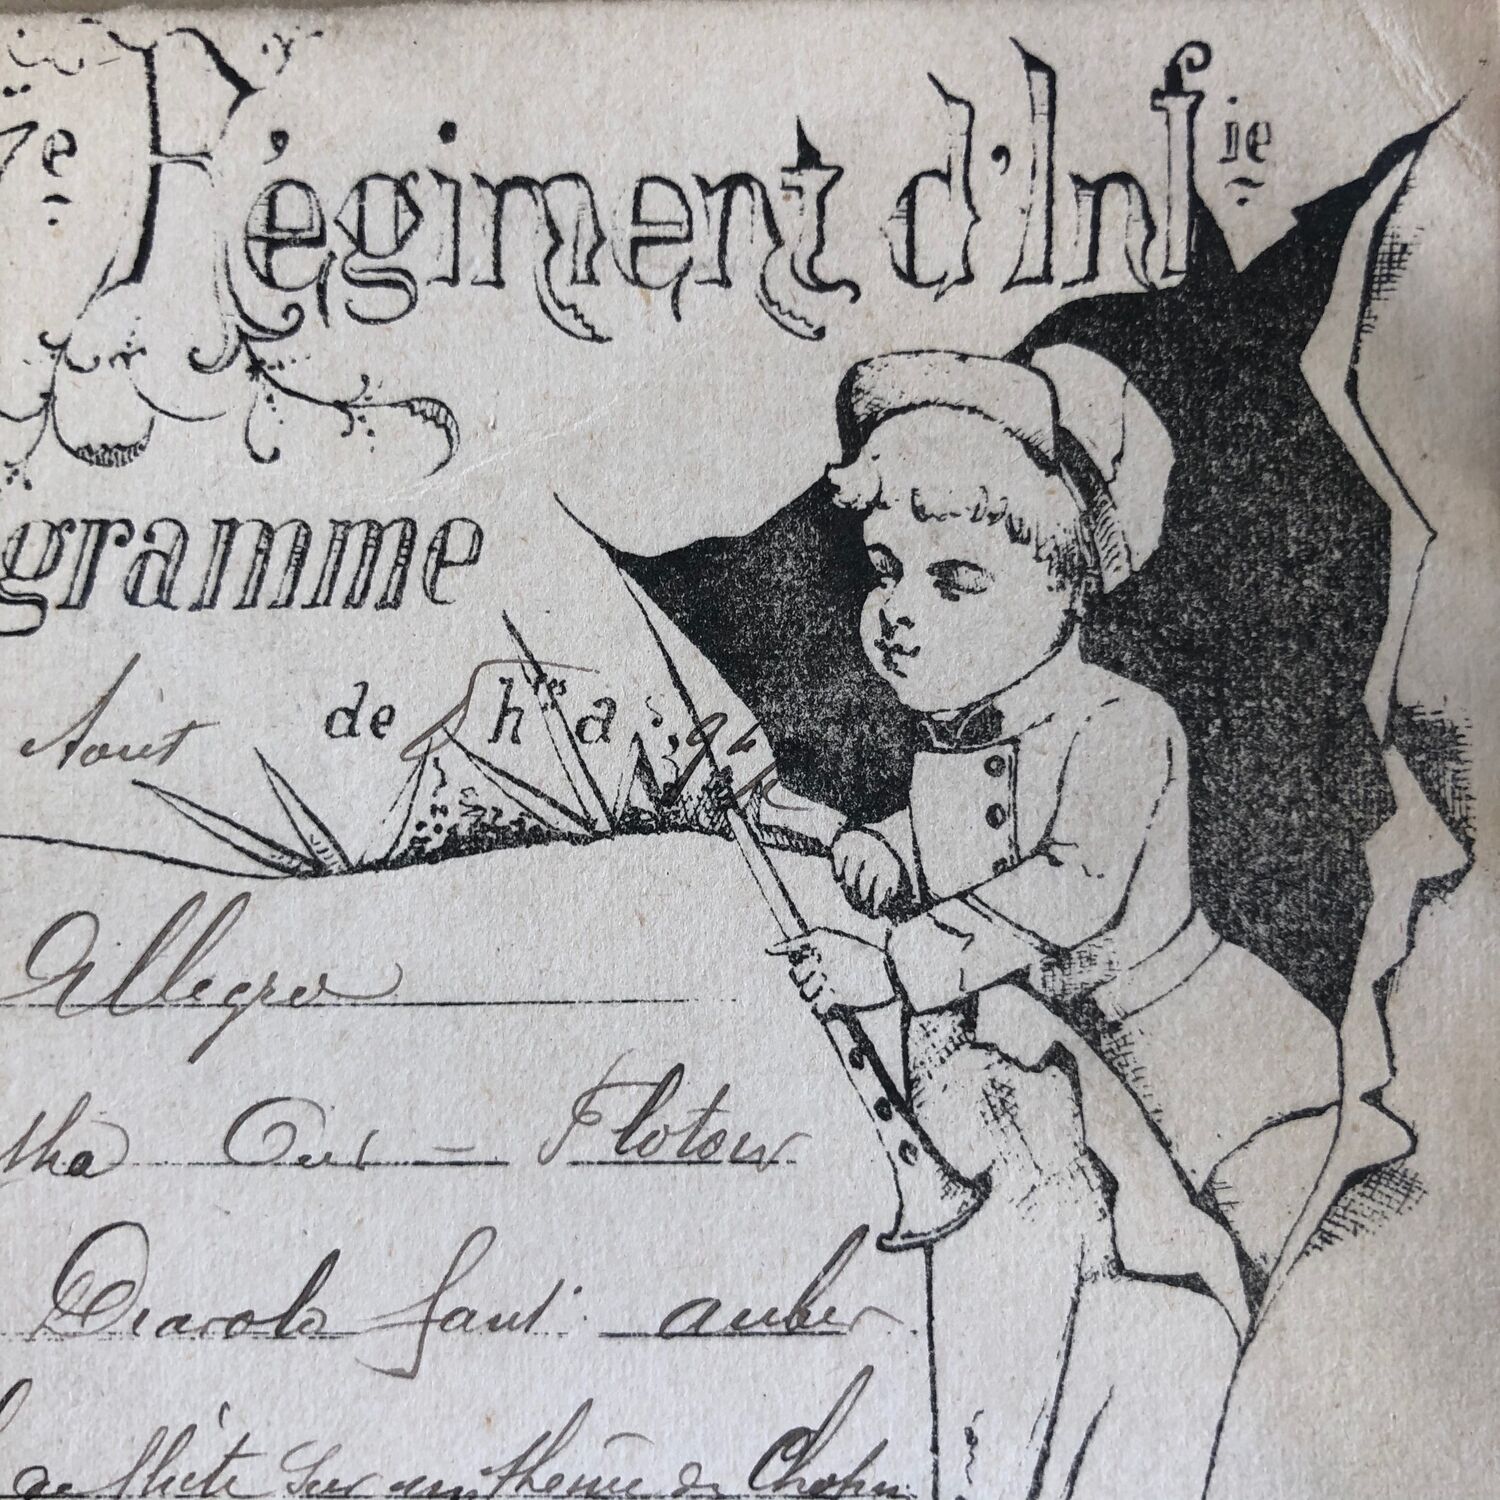 7e Régiment d'Infie
gramme
Aout de hres a
Allegro
tha Ouv - Flotow
Diavolo fant: auber
de flûte sur un thème de Chopin